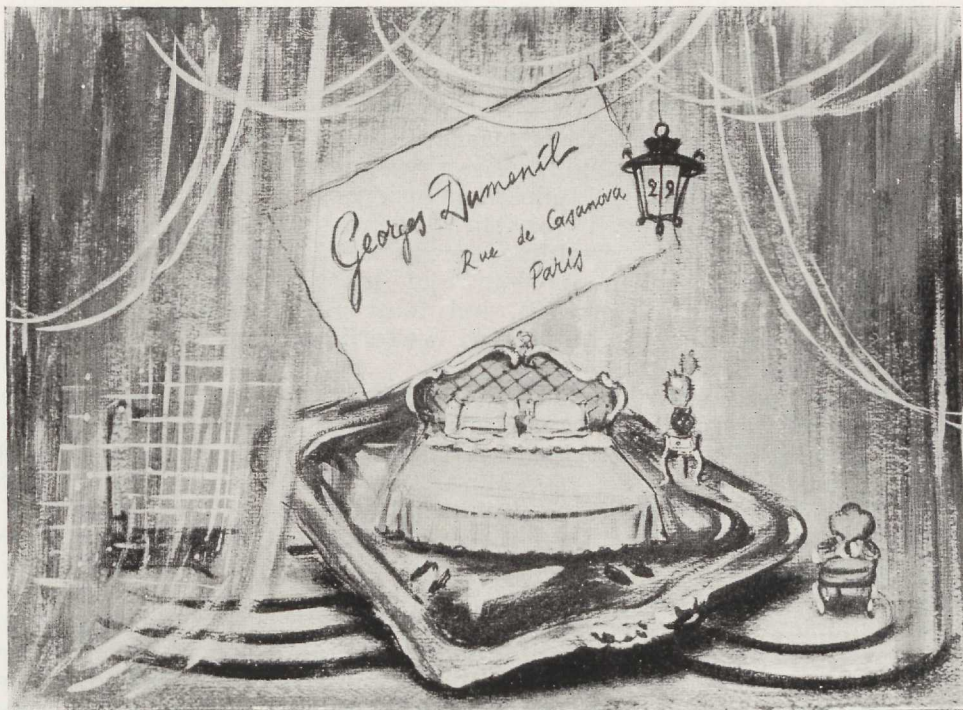 Georges Dumenil
Rue de Casanova
Paris
29